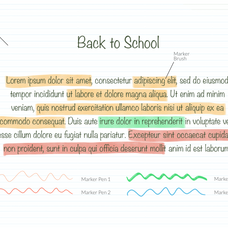 Back to School
Marker
Brush
Lorem ipsum dolor sit amet, consectetur adipiscing elit, sed do eiusmod
tempor incididunt ut labore et dolore magna aliqua. Ut enim ad minim
veniam, quis nostrud exercitation ullamco laboris nisi ut aliquip ex ea
commodo consequat. Duis aute irure dolor in reprehenderit in voluptate
esse cillum dolore eu fugiat nulla pariatur. Excepteur sint occaecat
non proident, sunt in culpa qui officia deserunt mollit anim id est
Marker Pen 1
Marker Pen 2